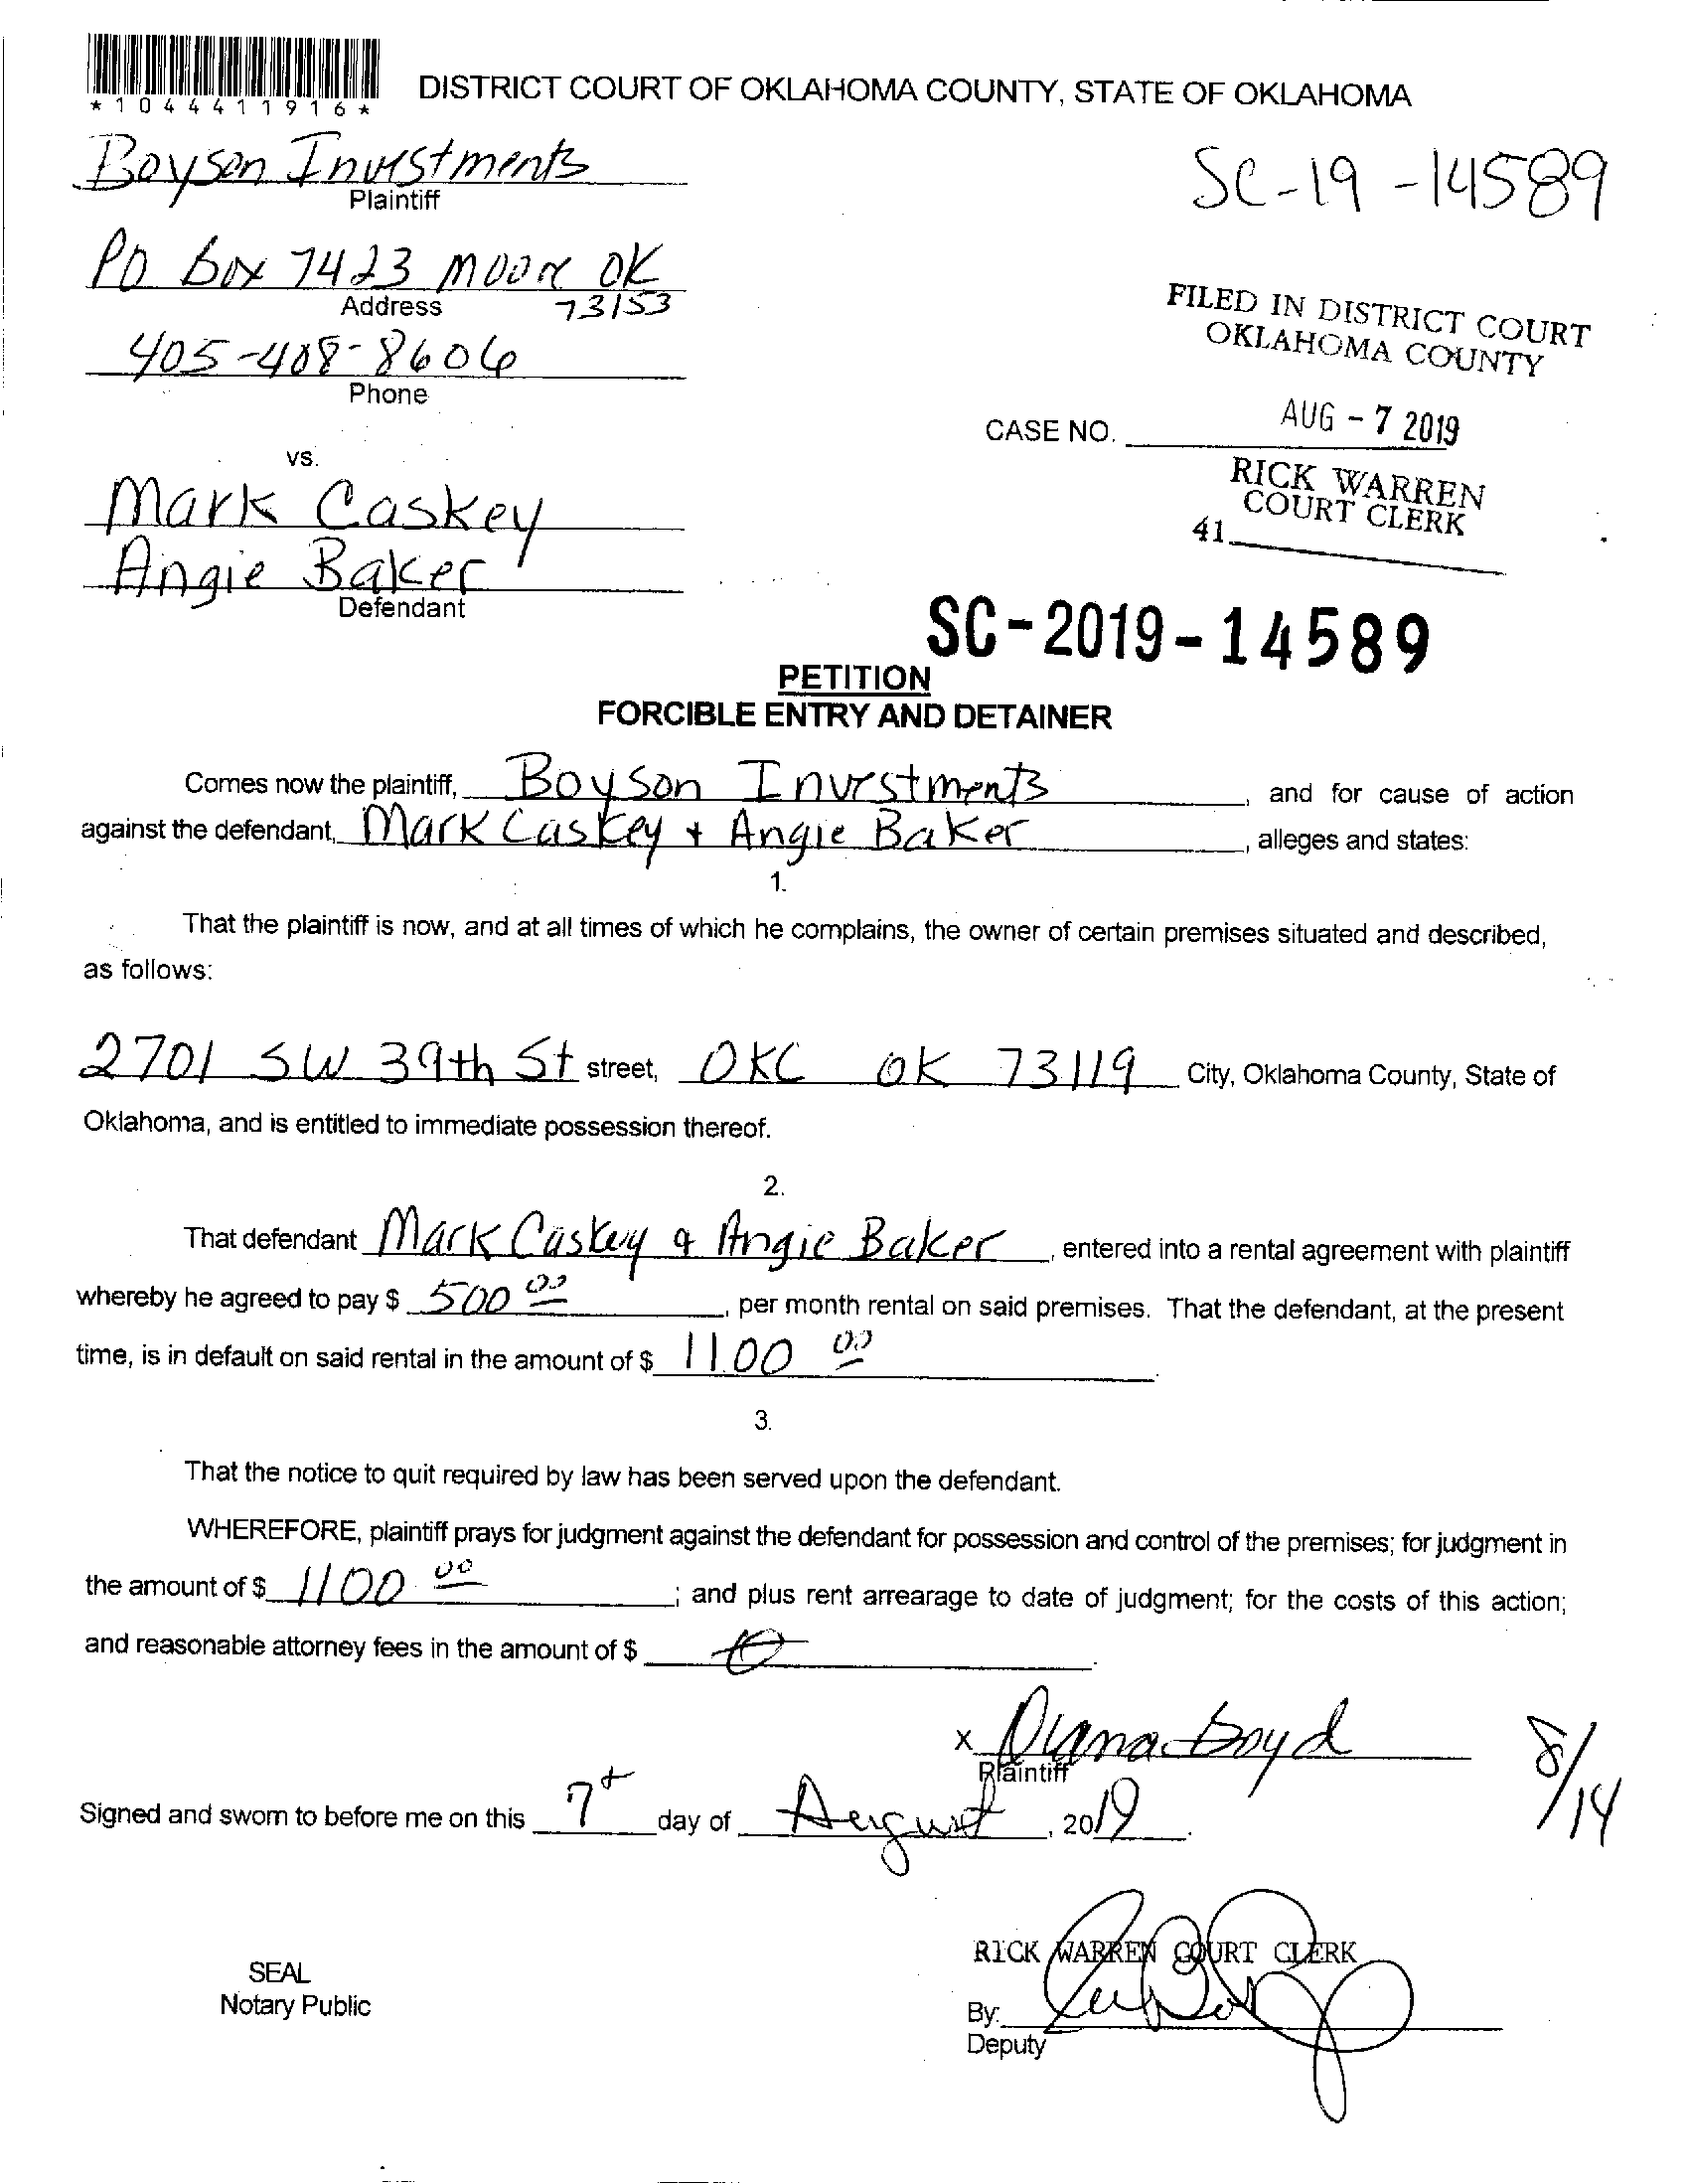 *1044411916*
DISTRICT COURT OF OKLAHOMA COUNTY, STATE OF OKLAHOMA
Boyson Investments
Plaintiff
SC-19-14589
PO Box 7423 Moore OK
Address
73153
405-408-8606
Phone
FILED IN DISTRICT COURT
OKLAHOMA COUNTY
AUG - 7 2019
CASE NO.
RICK WARREN
COURT CLERK
41
vs.
Mark Caskey
Angie Baker
Defendant
SC-2019-14589
PETITION
FORCIBLE ENTRY AND DETAINER
Comes now the plaintiff, Boyson Investments, and for cause of action
against the defendant, Mark Caskey + Angie Baker, alleges and states:
1.
That the plaintiff is now, and at all times of which he complains, the owner of certain premises situated and described,
as follows:
2701 SW 39th St street, OKC OK 73119 City, Oklahoma County, State of
Oklahoma, and is entitled to immediate possession thereof.
2.
That defendant Mark Caskey & Angie Baker, entered into a rental agreement with plaintiff
whereby he agreed to pay $ 500 00, per month rental on said premises. That the defendant, at the present
time, is in default on said rental in the amount of $ 1100 00.
3.
That the notice to quit required by law has been served upon the defendant.
WHEREFORE, plaintiff prays for judgment against the defendant for possession and control of the premises; for judgment in
the amount of $ 1100 00; and plus rent arrearage to date of judgment; for the costs of this action;
and reasonable attorney fees in the amount of $ 0.
x Diana Boyd
Plaintiff
8/14
Signed and sworn to before me on this 7th day of August, 2019.
RICK WARREN COURT CLERK
SEAL
Notary Public
By:
Deputy